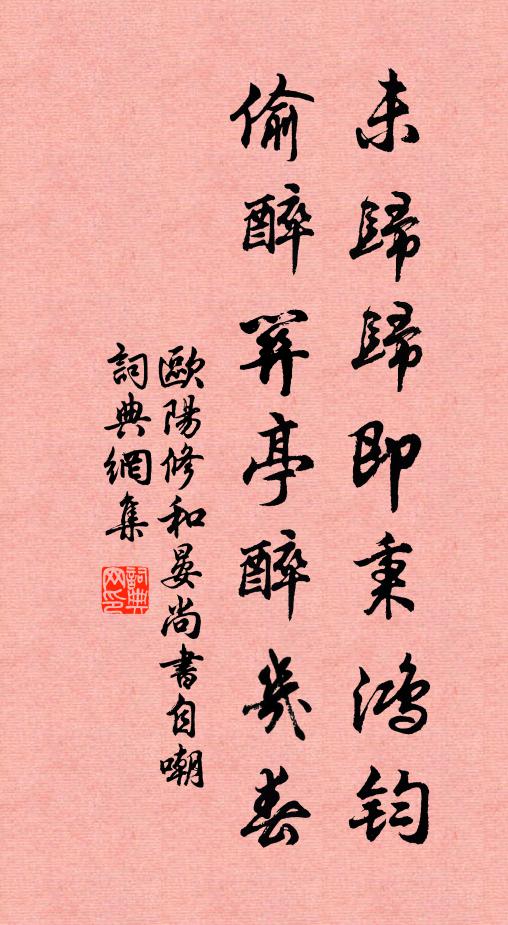 未歸歸即秉鴻鈞
偷醉等亭醉幾春
歐陽修和晏尚書自嘲
詞典網集
詞典网印